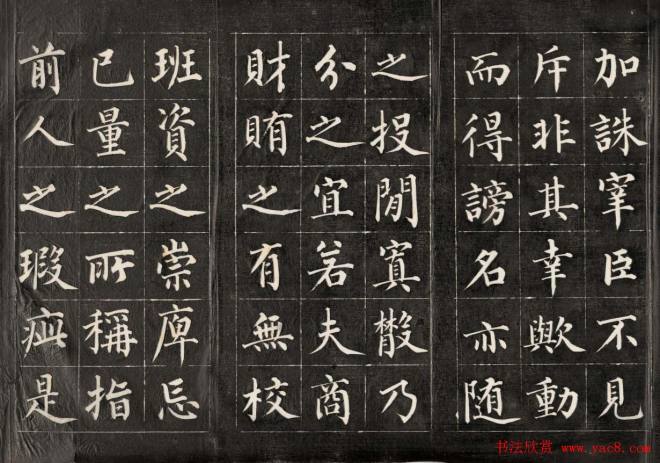 加誅宰臣不見
斥非其幸歟動
而得謗名亦随
之投閒寘散乃
分之宜若夫商
財賄之有無校
班資之崇庳忌
已量之所稱指
前人之瑕疵是
书法欣赏 www.yac8.com